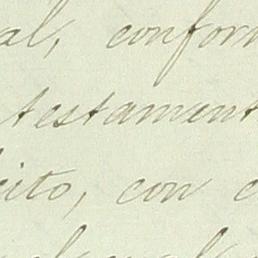 al, conform
testament
cito, con c